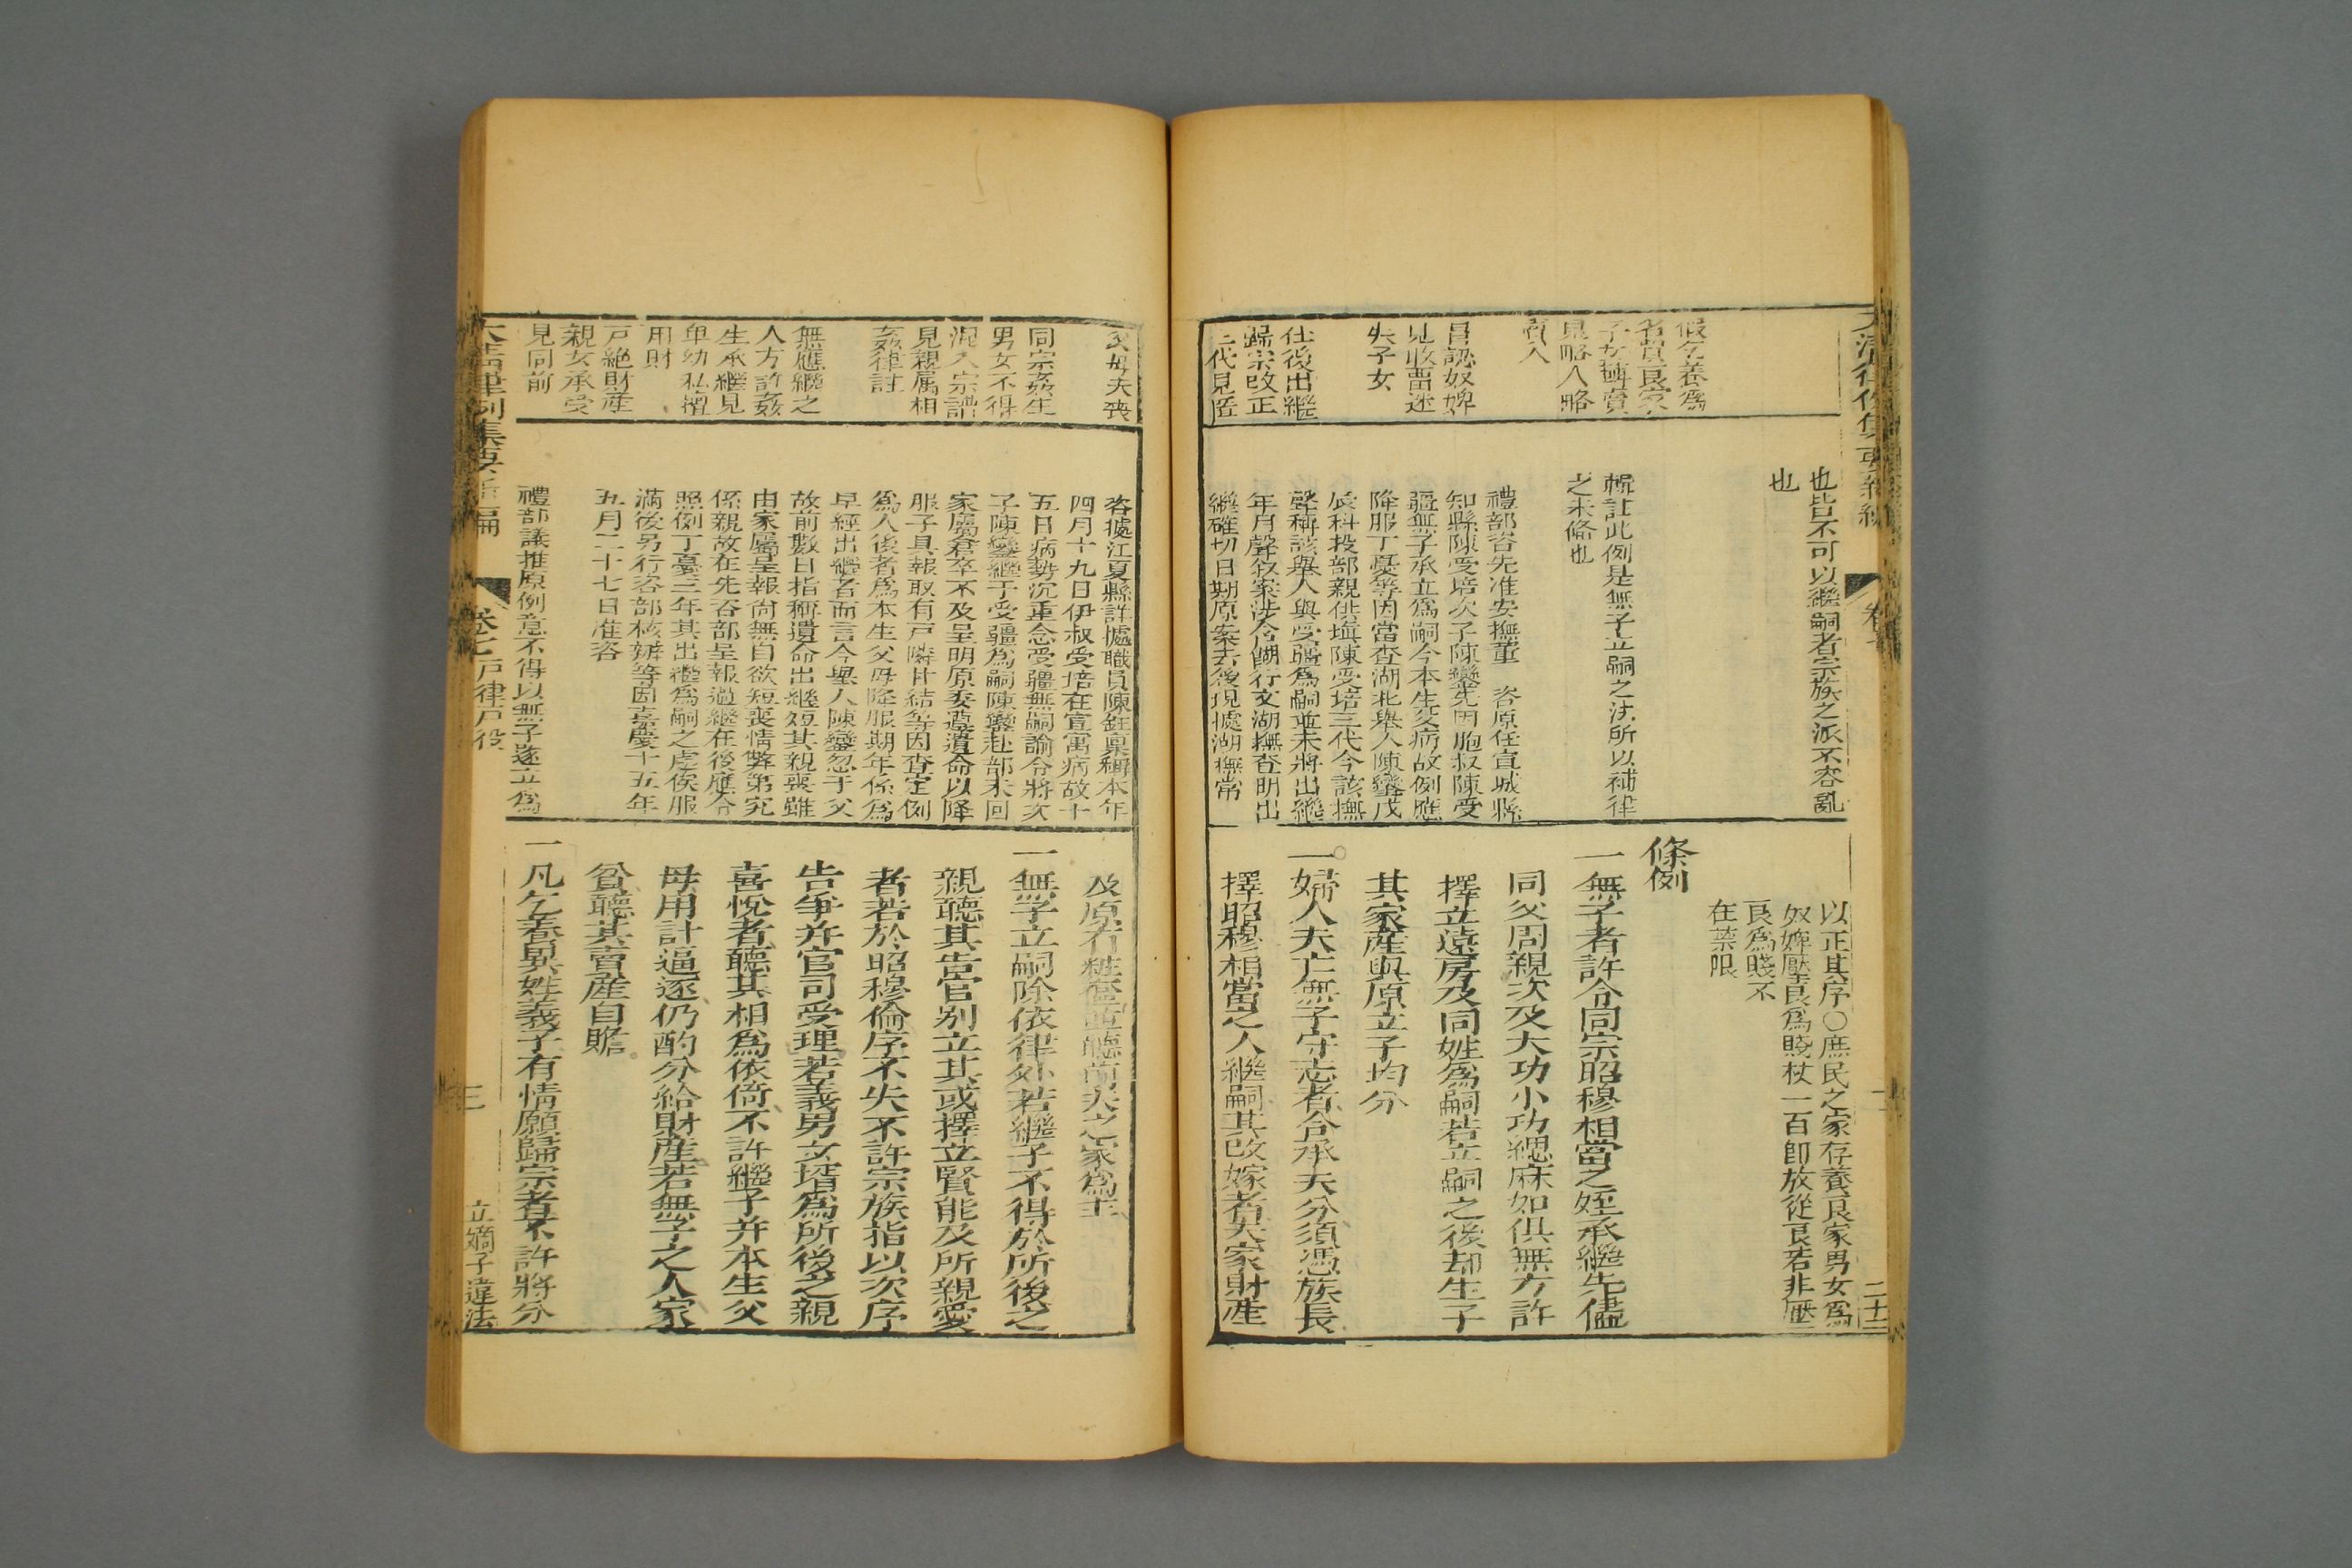 假乞養爲
名買良家
子女轉賣
見略人略
賣人
冒認奴婢
見收畱迷
失子女
仕後出繼
歸宗改正
三代見匿
也皆不可以繼嗣者宗族之派不容亂
也
輯註此例是無子立嗣之法所以補律
之未偹也
禮部咨先准安撫董 咨原任宣城縣
知縣陳受培次子陳鑾先因胞叔陳受
疆無子承立爲嗣今本生父病故例應
降服丁憂等因當查湖北舉人陳鑾戊
辰科投部親供塡陳受培三代今該撫
聲稱該舉人與受疆爲嗣並未將出繼
年月聲敘案涉含餬行文湖撫查明出
繼確切日期原案去後現據湖撫常
以正其序〇庶民之家存養良家男女爲
奴婢壓良爲賤杖一百卽放從良若非壓
良爲賤不
在禁限
條例
一無子者許令同宗昭穆相當之姪承繼先儘
同父周親次及大功小功緦麻如俱無方許
擇立遠房及同姓爲嗣若立嗣之後却生子
其家產與原立子均分
一婦人夫亡無子守志者合承夫分須憑族長
擇昭穆相當之人繼嗣其改嫁者夫家財產
二十三
父母夫喪
同宗姦生
男女不得
混入宗譜
見親屬相
姦律註
無應繼之
人方許姦
生承繼見
卑幼私擅
用財
戸絶財產
親女承受
見同前
咨據江夏縣詳據職員陳鉦稟稱本年
四月十九日伊叔受培在宣寓病故十
五日病勢沉重念受疆無嗣諭令將次
子陳鑾繼于受疆爲嗣陳鑾赴部未回
家屬倉卒不及呈明原委遵遺命以降
服子具報取有戸隣甘結等因查定例
爲人後者爲本生父母降服期年係爲
早經出繼者而言今舉人陳鑾忽于父
故前數日指稱遺命出繼短其親喪雖
由家屬呈報尙無自欲短喪情弊第究
係親故在先咨部呈報過繼在後應令
照例丁憂三年其出繼爲嗣之處俟服
滿後另行咨部核辦等因嘉慶十五年
五月二十七日准咨
禮部議推原例意不得以無子遂立爲
及原有粧奩並聽前夫之家爲主
一無子立嗣除依律外若繼子不得於所後之
親聽其告官別立其或擇立賢能及所親愛
者若於昭穆倫序不失不許宗族指以次序
告爭并官司受理若義男女壻爲所後之親
喜悅者聽其相爲依倚不許繼子并本生父
母用計逼逐仍酌分給財產若無子之人家
貧聽其賣產自贍
一凡乞養異姓義子有情願歸宗者不許將分
大淸律例集要新編
卷七 戸律戸役
三
立嫡子違法